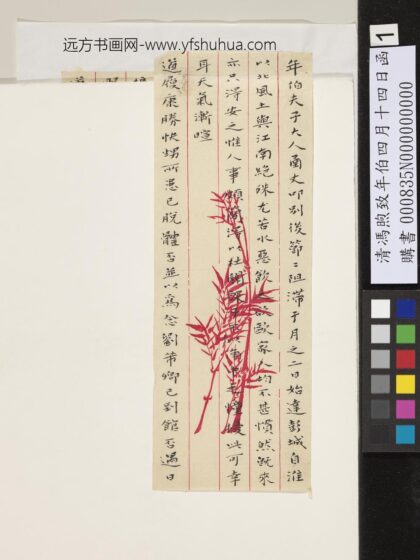 远方书画网-www.yfshuhua.com
1
清馮煦致年伯四月十四日函
購書 000835N000000000
年伯夫子大人函丈叩別後節〻阻滯于月之二日始達彭城自淮
以北風土與江南迥殊尤苦水惡飲 歐家人均不甚慣然既來
亦只得安之惟人事頗簡淨以杜謝 此可幸
耳天氣漸暄
道履康勝快甥所患已脫體否並以為念劉 卿已到館否過日